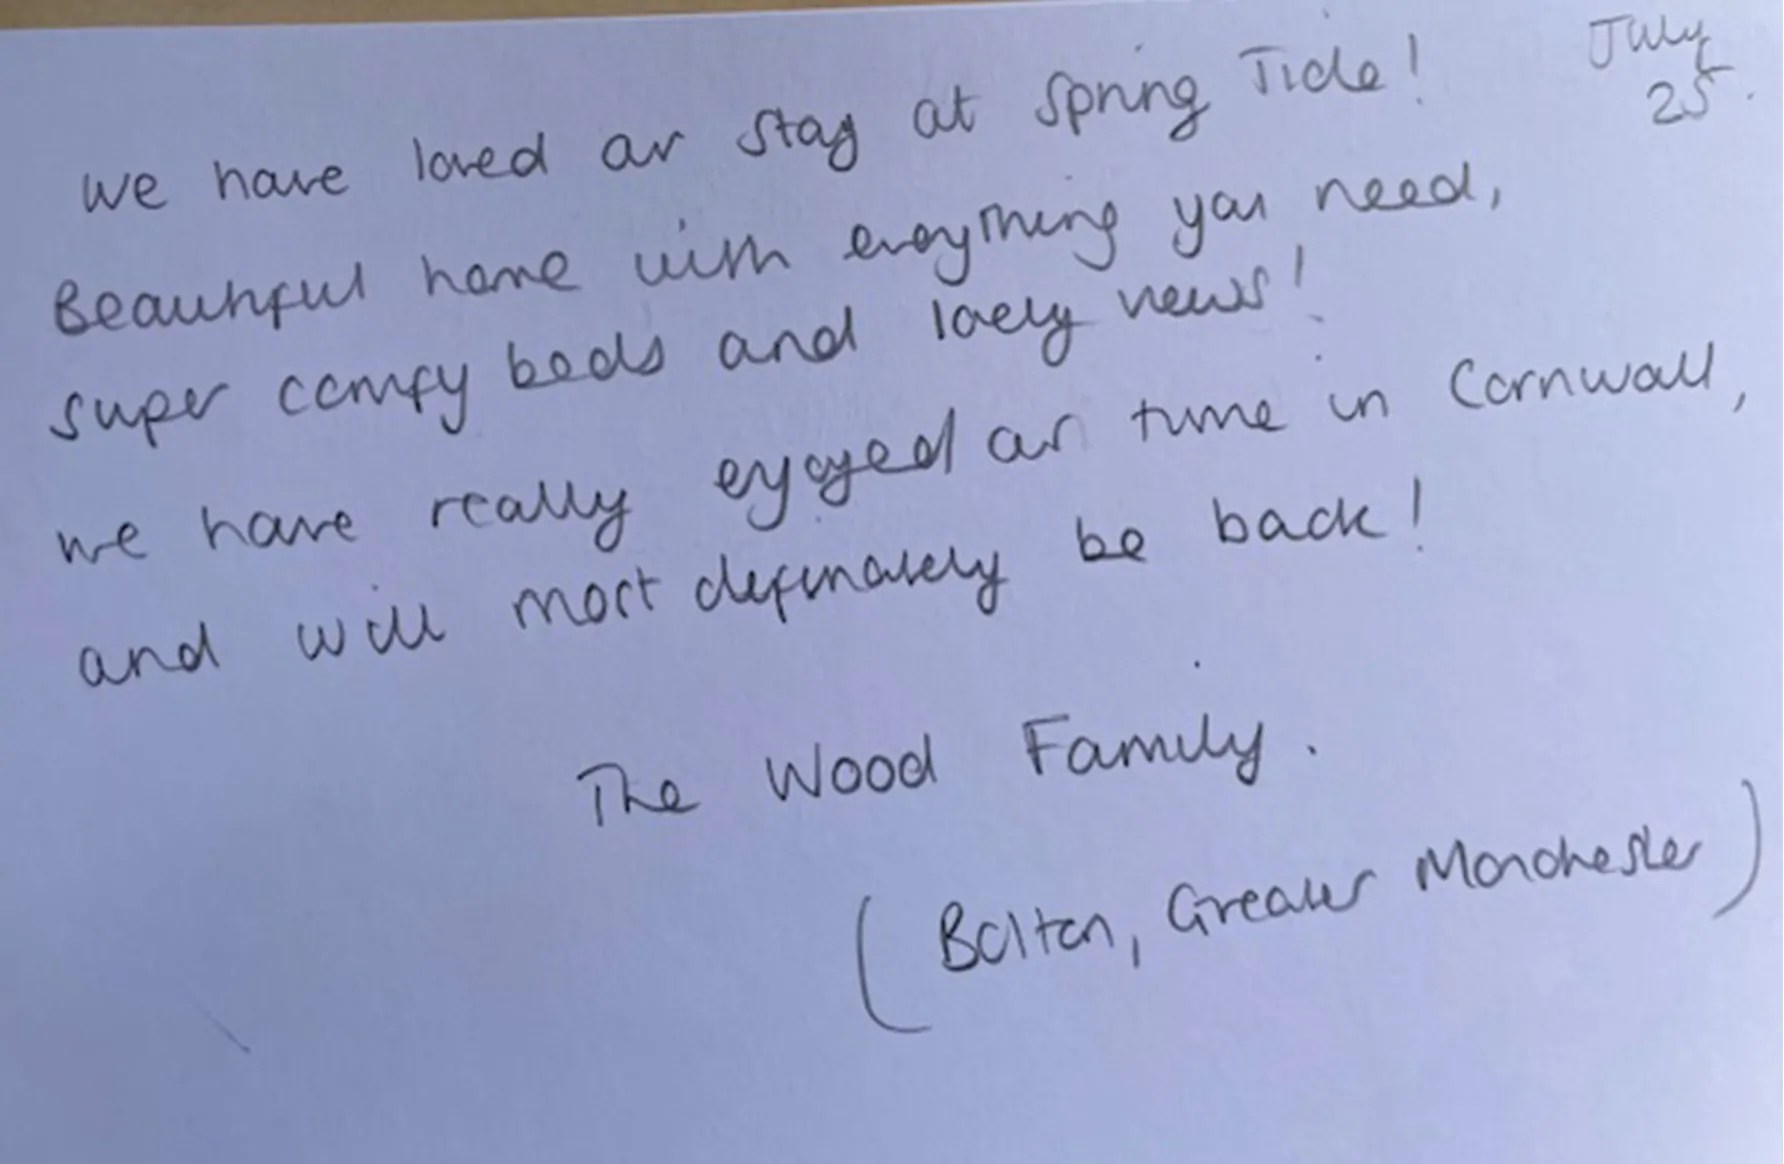 July
25.
We have loved our stay at Spring Tide!
Beautiful home with everything you need,
super comfy beds and lovely views!
We have really enjoyed our time in Cornwall,
and will most definately be back!
The Wood Family.
(Bolton, Greater Manchester)